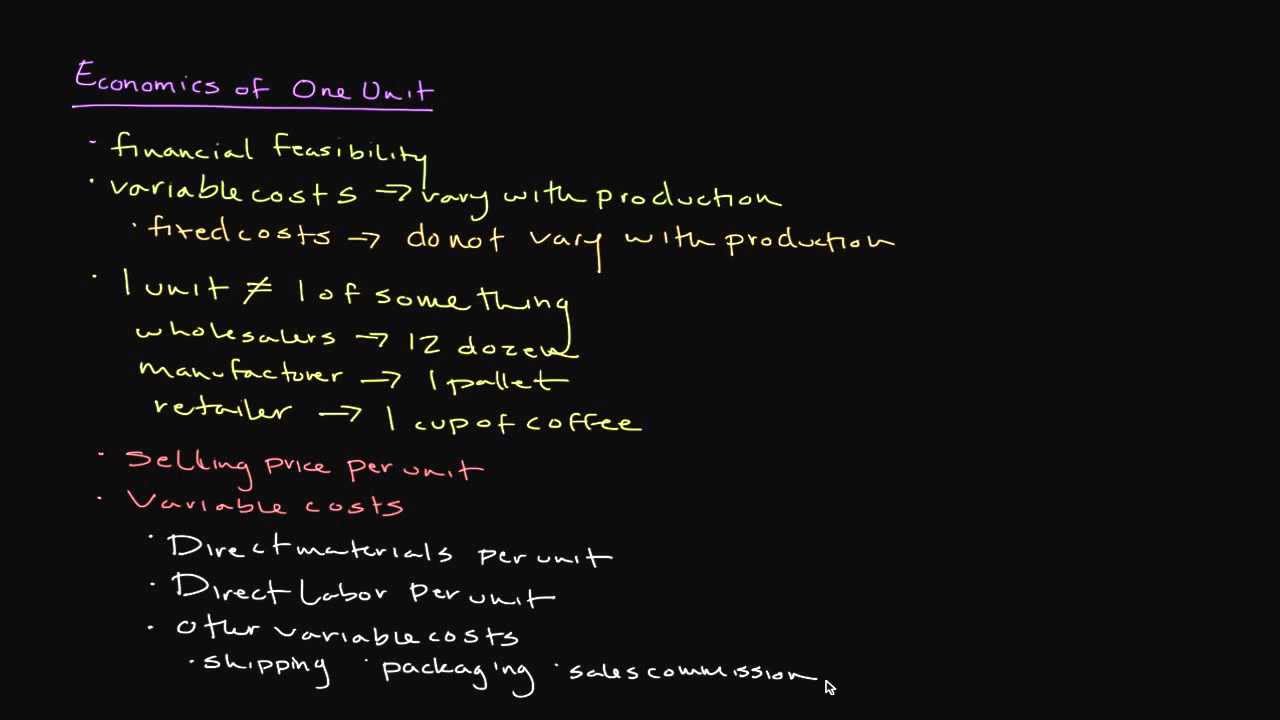 Economics of One Unit
· financial feasibility
· variable costs → vary with production
· fixed costs → do not vary with production
· 1 unit ≠ 1 of something
wholesalers → 12 dozen
manufacturer → 1 pallet
retailer → 1 cup of coffee
· Selling price per unit
· Variable costs
· Direct materials per unit
· Direct Labor per unit
· other variable costs
· shipping · packaging · sales commission